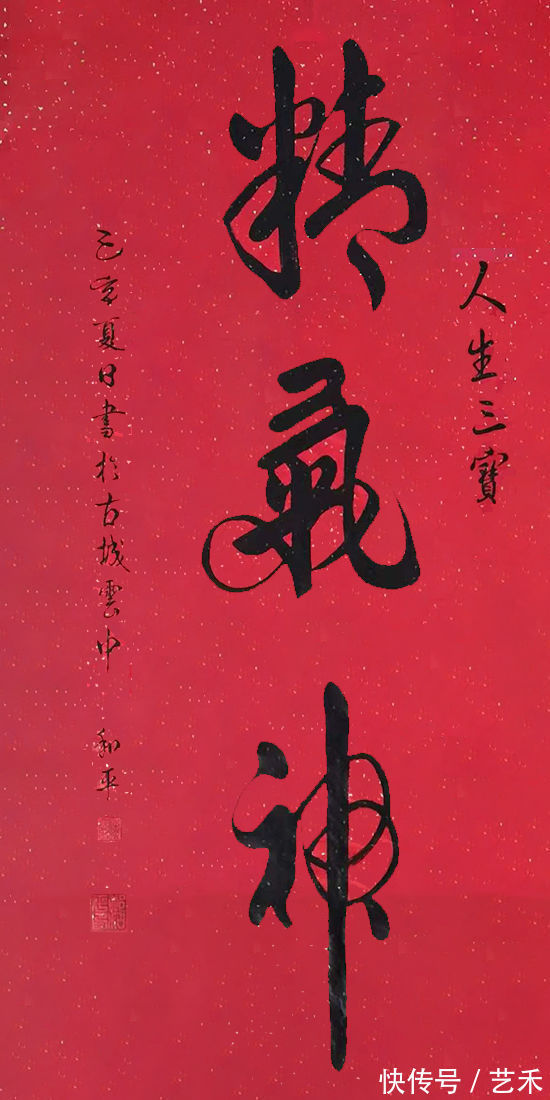 人生三寶
精氣神
己亥夏日書於古城雲中
和平
快传号 / 艺禾